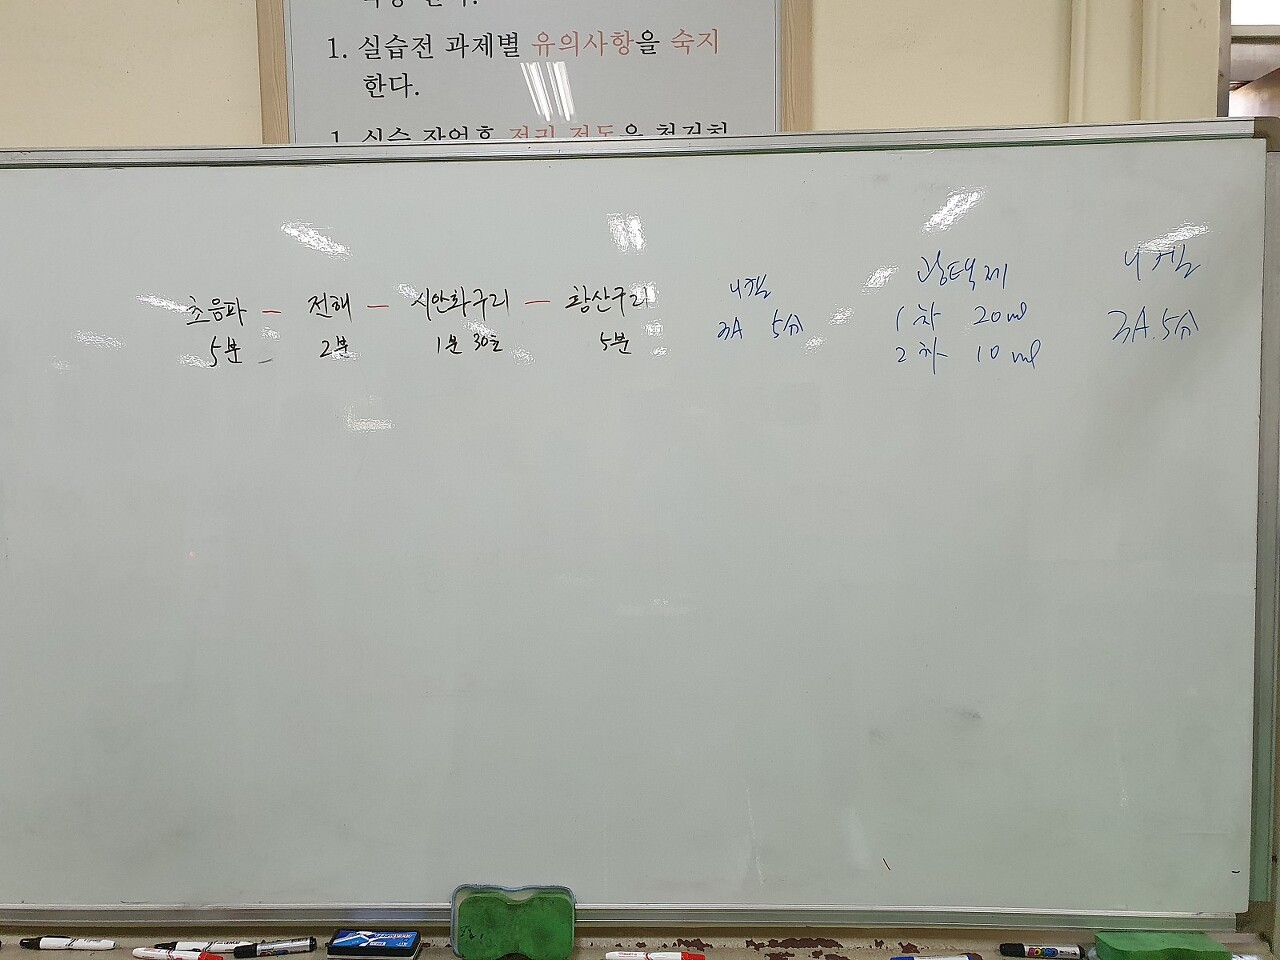 1. 실습전 과제별 유의사항을 숙지
한다.
1. 실습 작업후 정리 정돈을 철저히
초음파 - 전해 - 시안화구리 - 황산구리
5분 2분 1분 30초 5분
니켈
3A 5分
광택제
1차 20ml
2차 10ml
니켈
3A. 5分